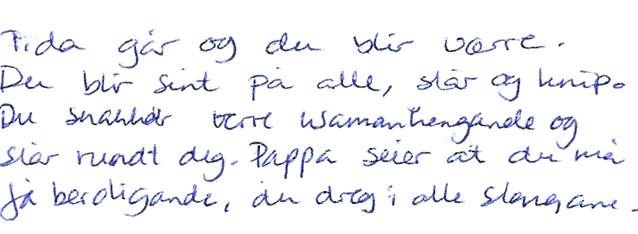 Tida går og du blir værre.
Du blir sint på alle, slår og knip.
Du snakker verre usamanhengande og
slår rundt deg. Pappa seier at du må
få beroligande, du dreg i alle slangane.